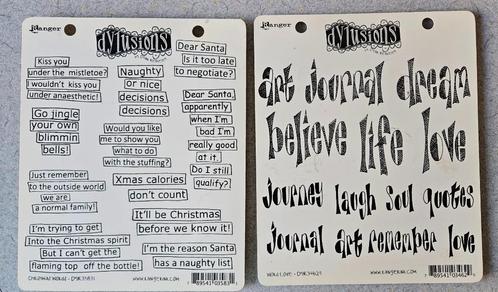 Ranger
dylusions
Kiss you
under the mistletoe?
I wouldn't kiss you
under anaesthetic!
Go jingle
your own
blimmin
bells!
Just remember
to the outside world
we are
a normal family!
I'm trying to get
Into the Christmas spirit
But I can't get the
flaming top off the bottle!
Naughty
or nice
decisions
decisions
Would you like
me to show you
what to do
with the stuffing?
Xmas calories
don't count
It'll be Christmas
before we know it!
I'm the reason Santa
has a naughty list
Dear Santa
Is it too late
to negotiate?
Dear Santa,
apparently
when I'm
bad I'm
really good
at it.
Do I still
qualify?
WWW.RANGERINK.COM
Ranger
dylusions
art journal dream
believe life love
journey laugh soul quotes
journal art remember love
WORD LOVE - DYR34629
WWW.RANGERINK.COM